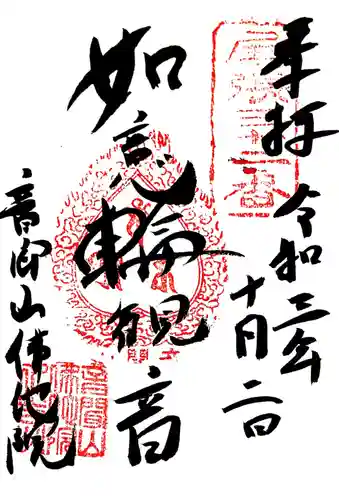 奉拝 令和三年
十月二日
如意輪観音
音聞山佛地院